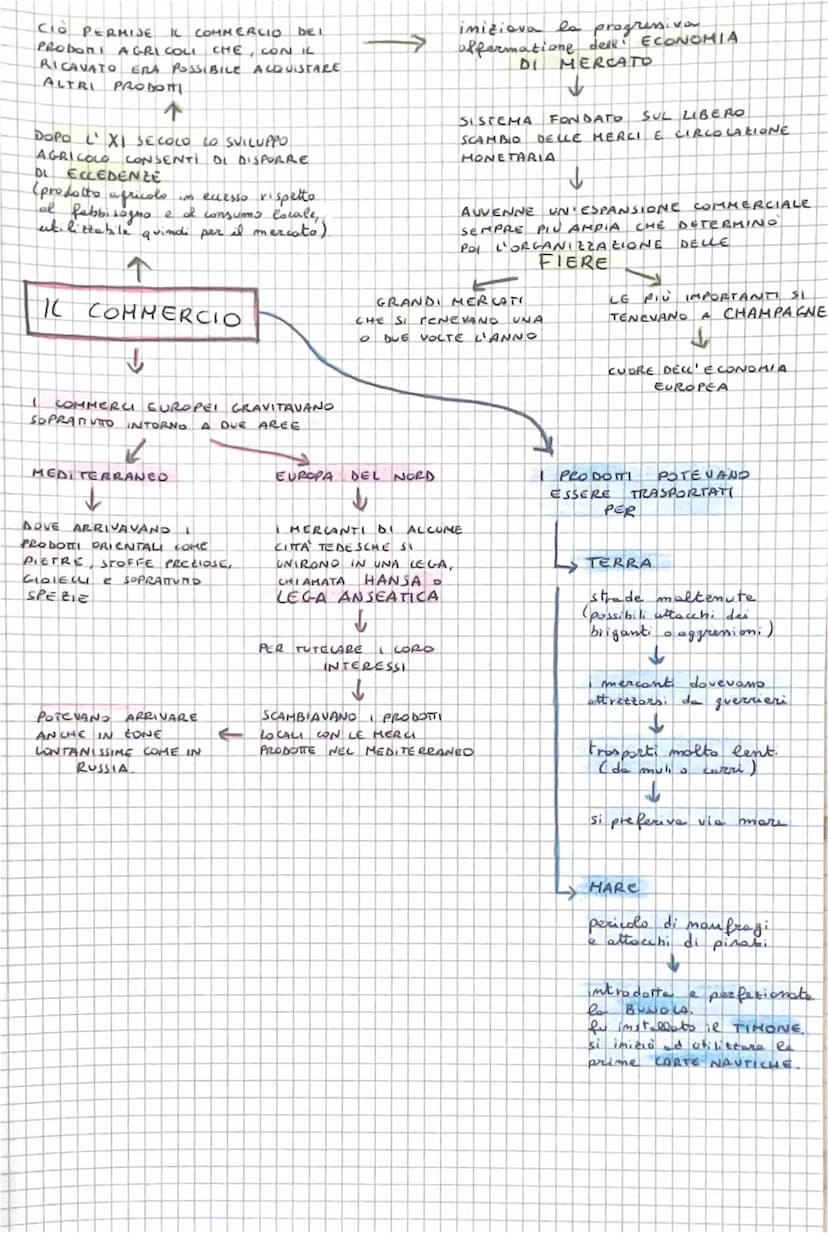 CIÒ PERMISE IL COMMERCIO DEI
PRODOTTI AGRICOLI CHE, CON IL
RICAVATO ERA POSSIBILE ACQUISTARE
ALTRI PRODOTTI
iniziava la progressiva
affermazione dell' ECONOMIA
DI MERCATO
DOPO L' XI SECOLO LO SVILUPPO
AGRICOLO CONSENTÌ DI DISPORRE
DI ECCEDENZE
(prodotto agricolo in eccesso rispetto
al fabbisogno e al consumo locale,
utilizzabile quindi per il mercato)
SISTEMA FONDATO SUL LIBERO
SCAMBIO DELLE MERCI E CIRCOLAZIONE
MONETARIA
AVVENNE UN'ESPANSIONE COMMERCIALE
SEMPRE PIÙ AMPIA CHE DETERMINÒ
POI L'ORGANIZZAZIONE DELLE
FIERE
GRANDI MERCATI
CHE SI TENEVANO UNA
O DUE VOLTE L'ANNO
LE PIÙ IMPORTANTI SI
TENEVANO A CHAMPAGNE
CUORE DELL'ECONOMIA
EUROPEA
IL COMMERCIO
I COMMERCI EUROPEI GRAVITAVANO
SOPRATTUTTO INTORNO A DUE AREE
MEDITERRANEO
DOVE ARRIVAVANO I
PRODOTTI ORIENTALI COME
PIETRE, STOFFE PREZIOSE,
GIOIELLI E SOPRATTUTTO
SPEZIE
EUROPA DEL NORD
I MERCANTI DI ALCUNE
CITTÀ TEDESCHE SI
UNIRONO IN UNA LEGA,
CHIAMATA HANSA O
LEGA ANSEATICA
PER TUTELARE I LORO
INTERESSI
SCAMBIAVANO I PRODOTTI
LOCALI CON LE MERCI
PRODOTTE NEL MEDITERRANEO
POTEVANO ARRIVARE
ANCHE IN ZONE
LONTANISSIME COME IN
RUSSIA.
I PRODOTTI POTEVANO
ESSERE TRASPORTATI
PER
TERRA
strade maltenute
(possibili attacchi dei
briganti o aggressioni)
i mercanti dovevano
attrezzarsi da guerrieri
trasporti molto lenti
(da muli o carri)
si preferiva via mare
MARE
pericolo di naufragi
e attacchi di pirati
introdotta e perfezionata
la BUSSOLA.
fu installato il TIMONE.
si iniziò ad utilizzare le
prime CARTE NAUTICHE.